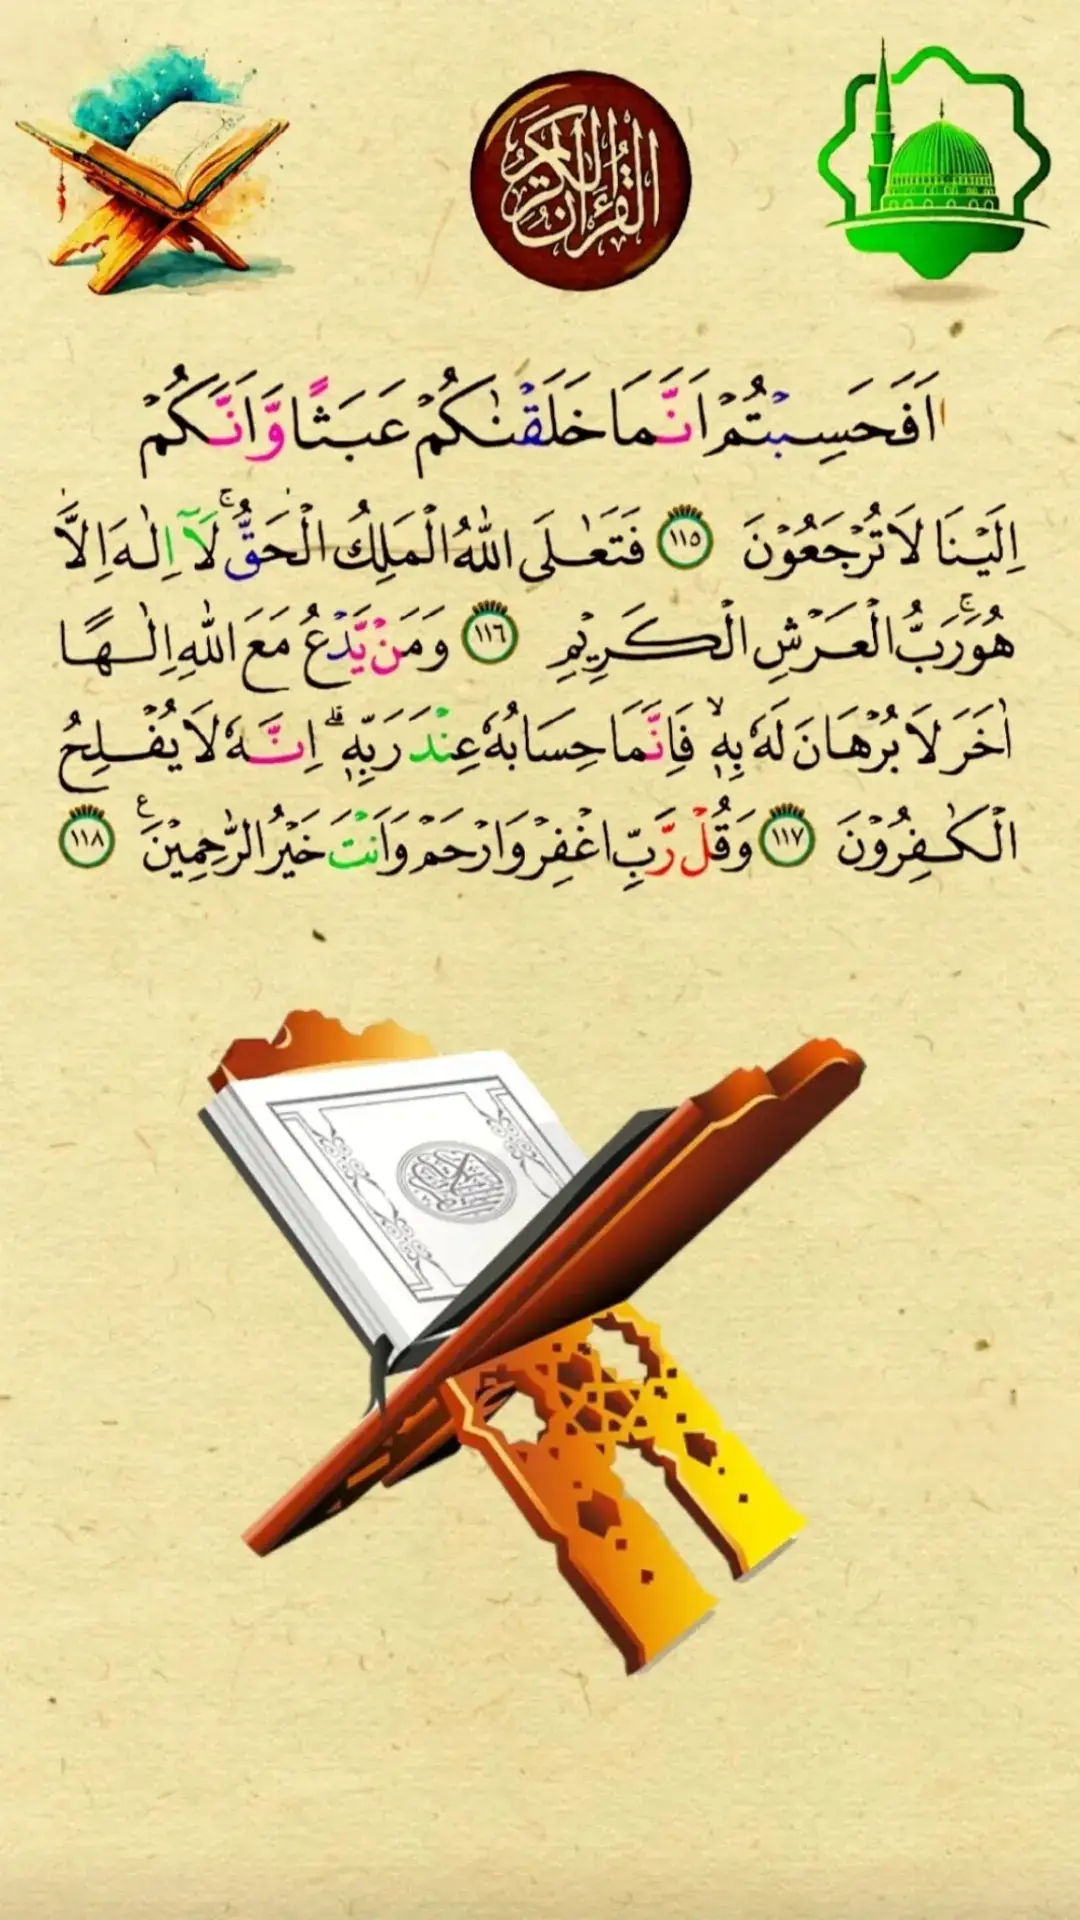 القرآن الكريم
اَفَحَسِبْتُمْ اَنَّمَا خَلَقْنٰكُمْ عَبَثًا وَّاَنَّكُمْ
اِلَيْنَا لَا تُرْجَعُوْنَ ﴿۱۱۵﴾ فَتَعٰلَى اللّٰهُ الْمَلِكُ الْحَقُّ ۚ لَآ اِلٰهَ اِلَّا
هُوَ ۚ رَبُّ الْعَرْشِ الْكَرِيْمِ ﴿۱۱٦﴾ وَمَنْ يَّدْعُ مَعَ اللّٰهِ اِلٰهًا
اٰخَرَ لَا بُرْهَانَ لَهٗ بِهٖ ۙ فَاِنَّمَا حِسَابُهٗ عِنْدَ رَبِّهٖ ؕ اِنَّهٗ لَا يُفْلِحُ
الْكٰفِرُوْنَ ﴿۱۱۷﴾ وَقُلْ رَّبِّ اغْفِرْ وَارْحَمْ وَاَنْتَ خَيْرُ الرّٰحِمِيْنَ ﴿۱۱۸﴾
القرآن الكريم